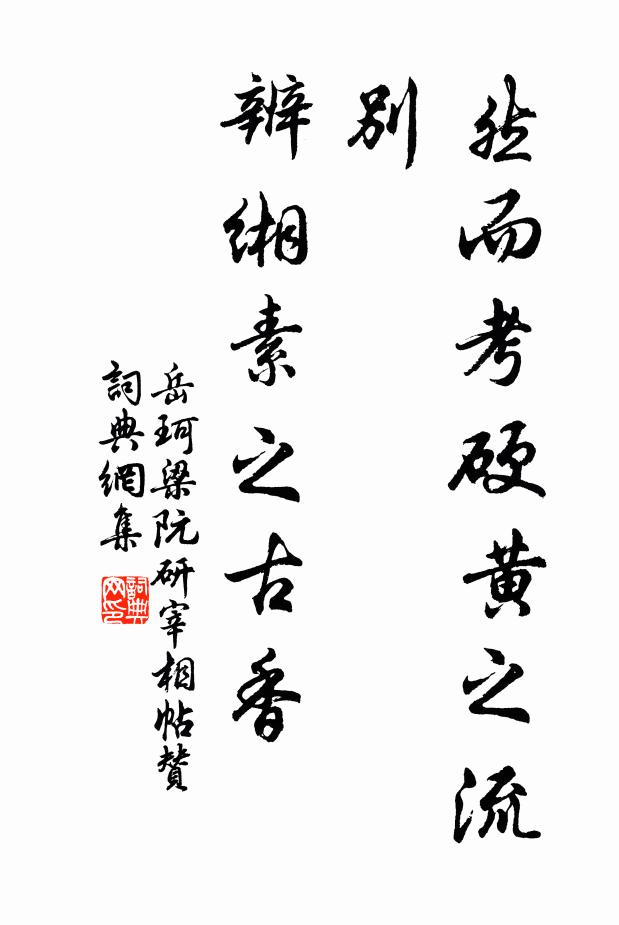 然而考硬黄之流
别
辨缃素之古香
岳珂梁阮研宰相帖赞
詞典網集
詞典
网印